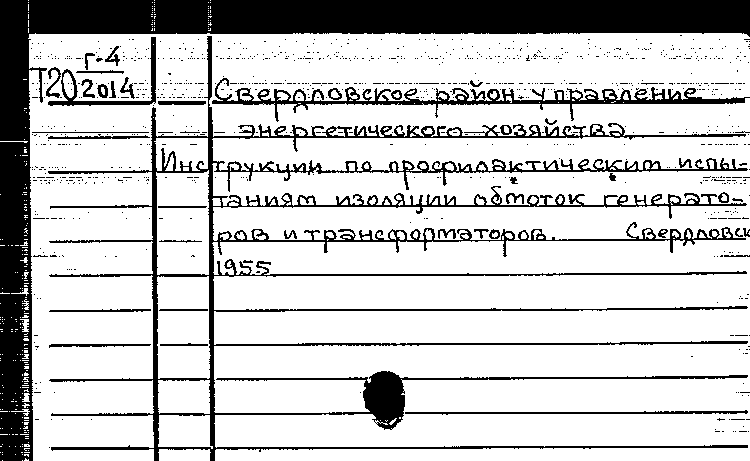 Т20 г-4
2014
Свердловское район. управление
энергетического хозяйства.
Инструкции по профилактическим испы-
таниям изоляции обмоток генерато-
ров и трансформаторов. Свердловск
1955